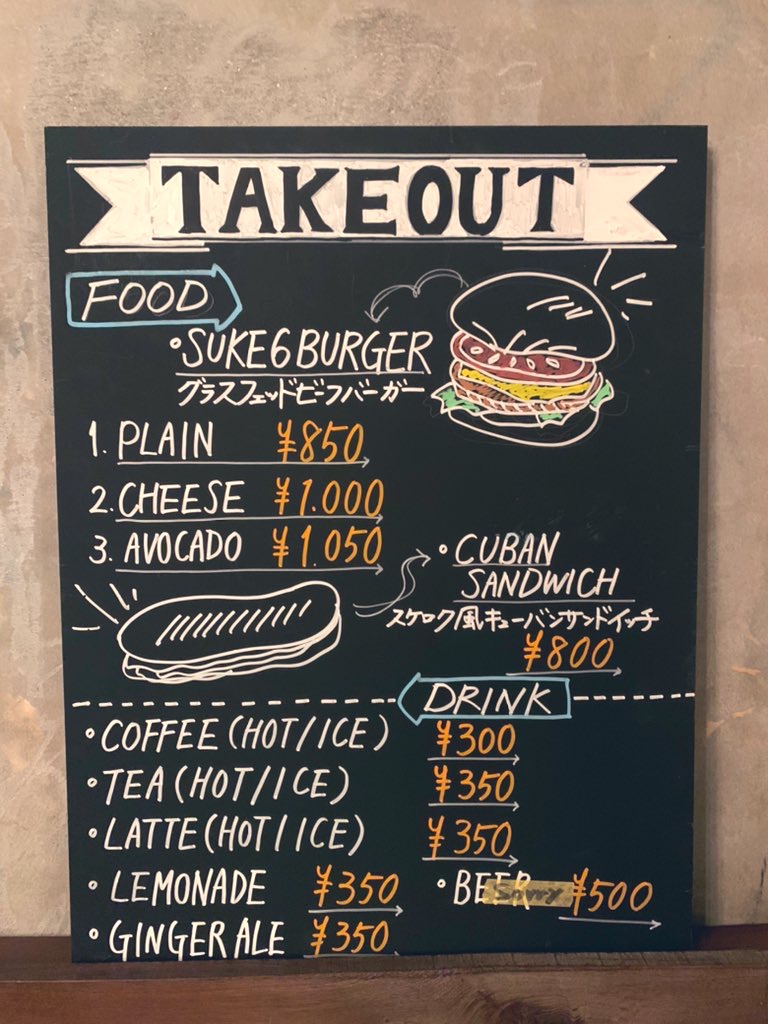 TAKEOUT
FOOD
•SUKE6 BURGER
グラスフェッドビーフバーガー
1. PLAIN ¥850
2. CHEESE ¥1.000
3. AVOCADO ¥1.050
•CUBAN
SANDWICH
スケロク風キューバンサンドイッチ
¥800
DRINK
•COFFEE (HOT/ICE) ¥300
•TEA (HOT/ICE) ¥350
•LATTE (HOT/ICE) ¥350
•LEMONADE ¥350
•BEER Sorry ¥500
•GINGER ALE ¥350